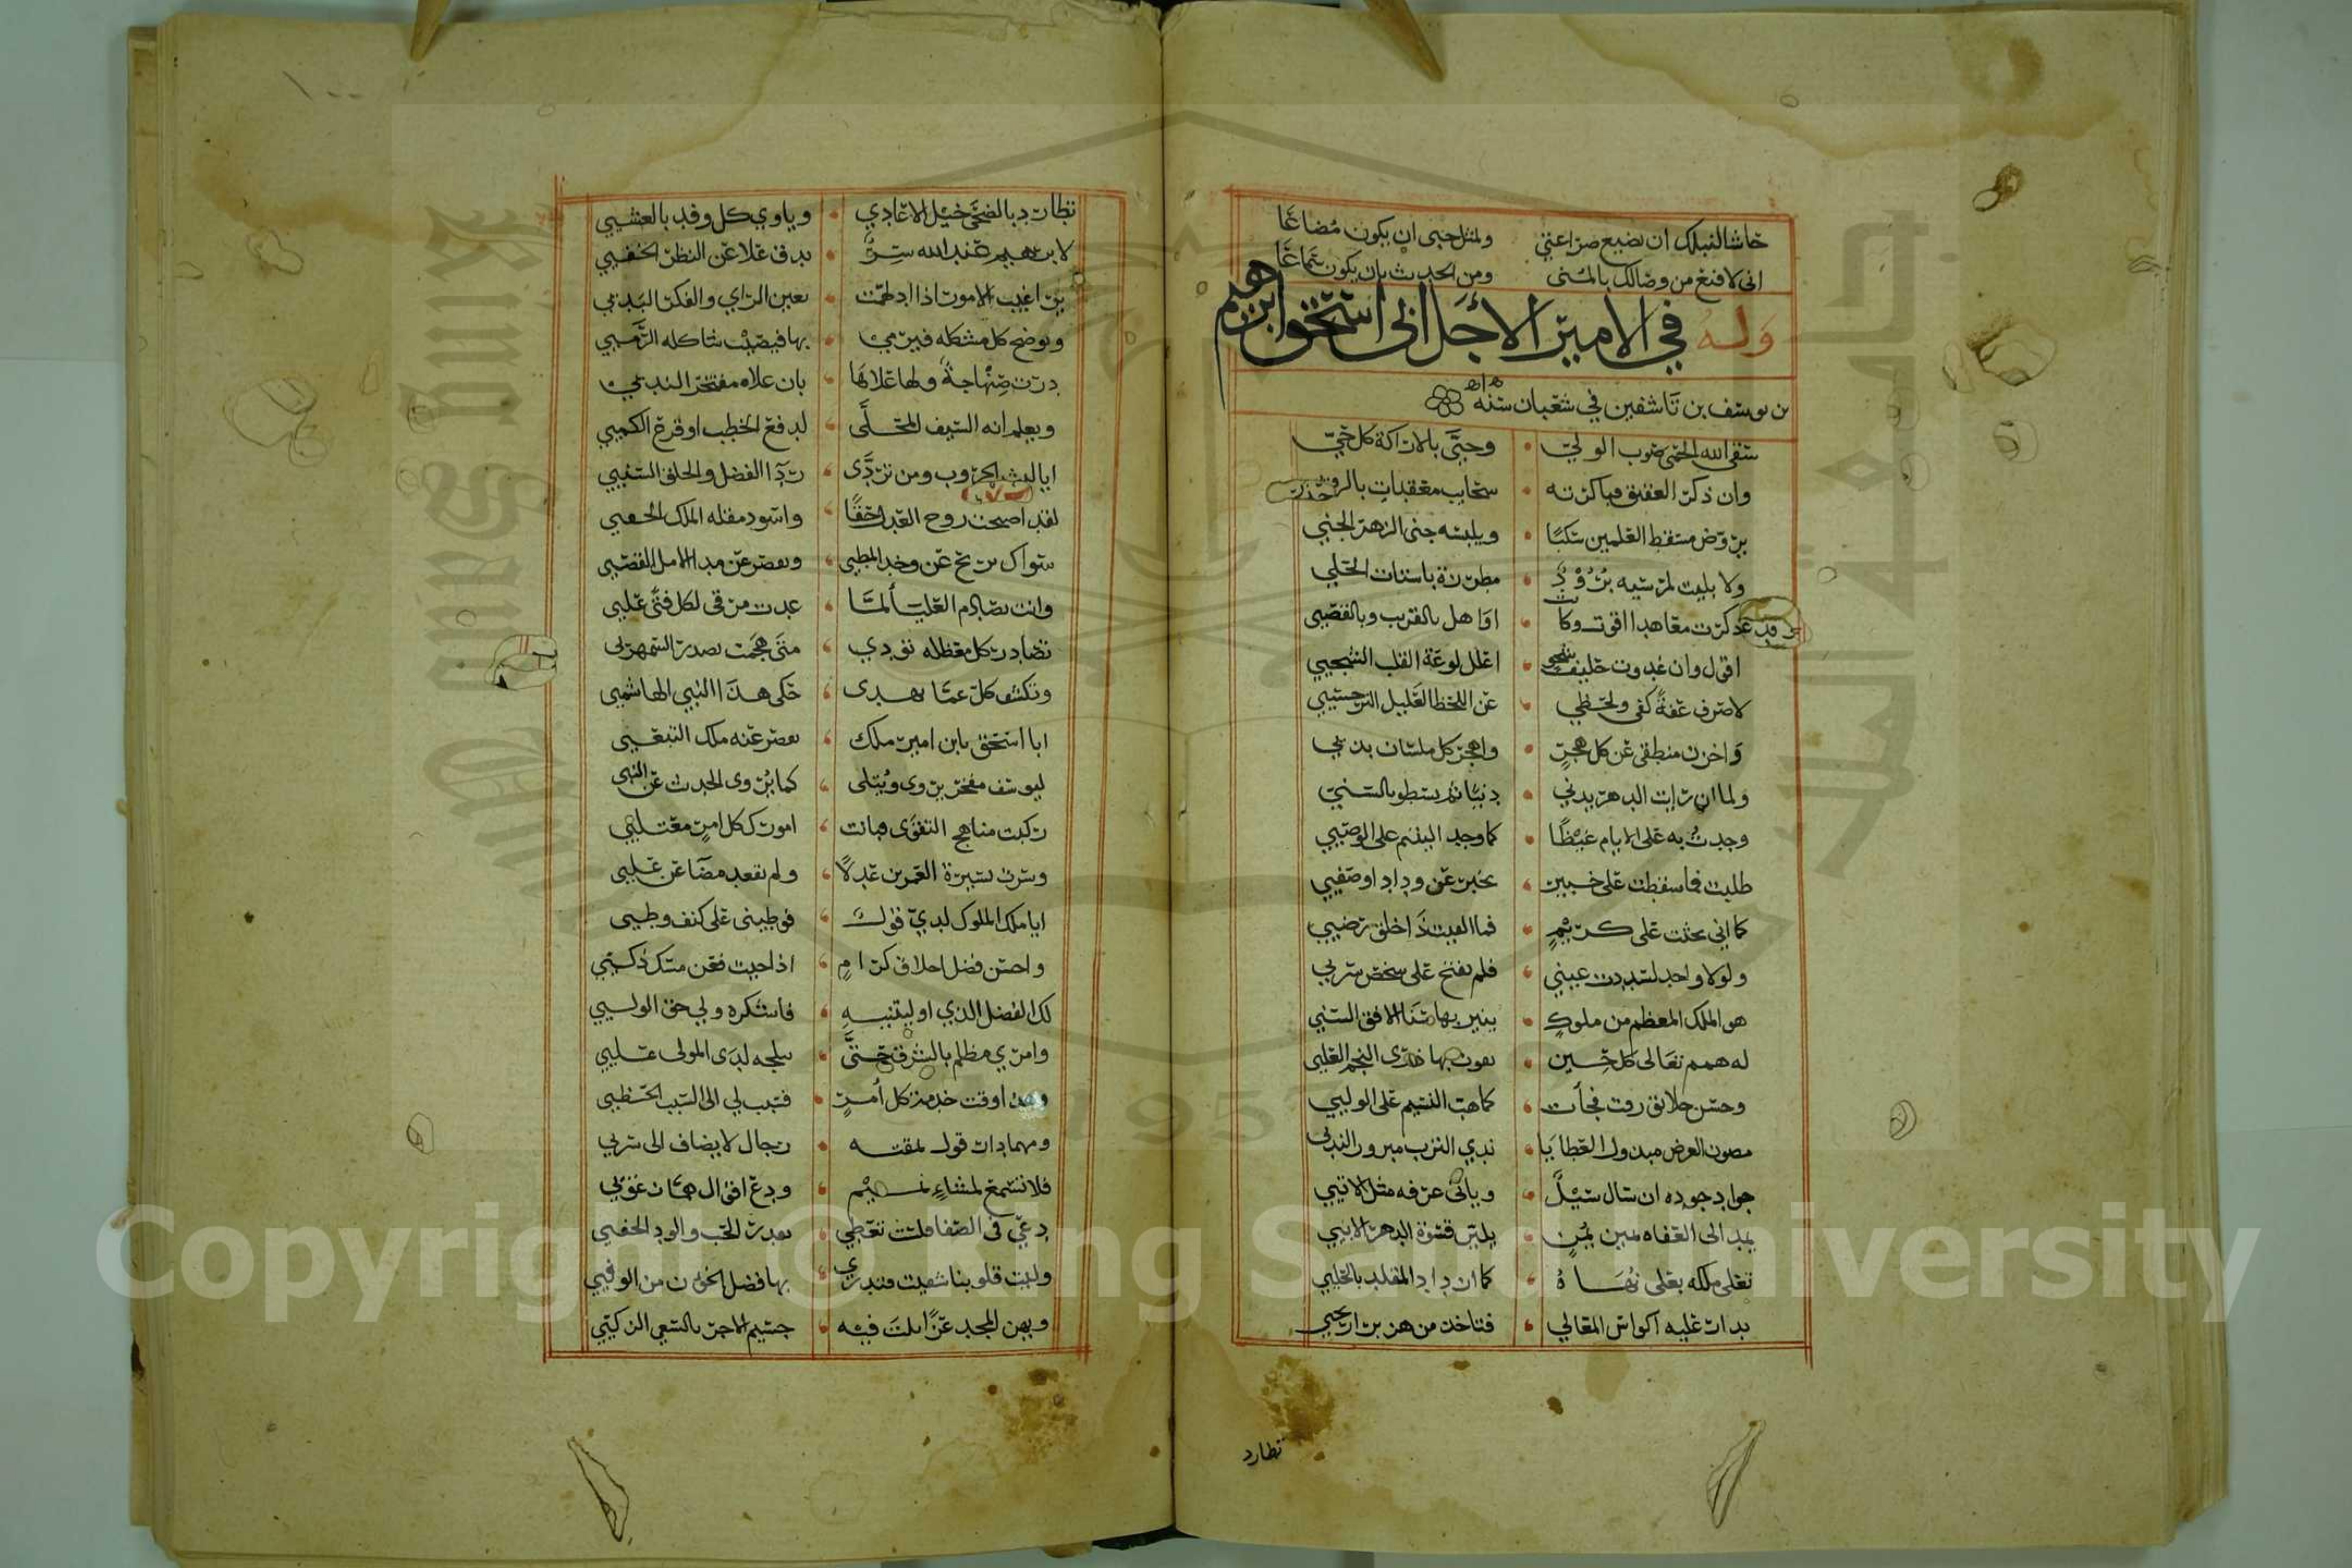 حاشا لنبلك ان تضيع ضراعتي ولمثل حبي ان يكون مضاعا
اني لاقنع من وصالك بالمنى ومن الحديث بان يكون سماعا
وله في الامير الأجل ابي اسحق ابرهيم
بن يوسف بن تاشفين في شعبان سنه
سقى الله الحمى صوب الولي • وحيَّى بالاراكة كل حي
وان ذكر العقيق فباكرته • سحايب معقبات بالروي
يروض مسقط العلمين سكبًا • ويلبسه جنى الزهر الجني
ولا بليت لمرسيه برود • مطرزة باسنات الحلي
ذكرت معاهدا اقوت وكانت • اواهل بالقريب وبالقصي
اقول وان غدوت حليف شجو • اعلل لوعة القلب الشجي
لاصرف عفة كفي ولحظي • عن اللحظ العليل النرجسي
واخزن منطقي عن كل هجر • واهجر كل ملسان بذي
ولما ان رايت الدهر يدني • دنيا ثم يسطو بالسني
وجدت به على الايام غيظا • كما وجد اليتيم على الوصي
طلبت فما سقطت على خبير • يخبر عن وداد او صفي
كما اني بحثت على كريم • فما الفيت ذا خلق رضي
ولولا واحد لسددت عيني • فلم تفتح على شخص سري
هو الملك المعظم من ملوك • ينير بها سنا الافق السني
له همم تعالى كل حين • بها ذرى النجم العلي
وحسن خلايق رقت فجأت • كما هب النسيم على الولي
مصون العرض مبذول العطايا • ندي الترب مبرور الندي
جواد جوده ان سال سيل • وياتى عرفه مثل الاتي
يمد الى العفاه يمين يمن • يلين قسوة الدهر الابي
تحلى ملكه بعلى نهاه • كما ازداد المقلد بالحلي
بدات عليه اكواس المعالي • فتاخذ من هز بر اريحي
تطارد
١٠٠
تطارد بالضحى خيل الاعادي • وياوي كل وفد بالعشي
لابرهيم عند الله سر • يدق علا عن النظر الخفي
يرى غيب الامور اذا ادلهمت • بعين الراي والفكر البدي
ويوضح كل مشكله فيرمي • بها فيصيب شاكله الرمي
درت صنهاجة ولها علاها • بان علاه مفتخر الندي
ويعلم انه السيف المحلى • لدفع الخطب او قرع الكمي
ايا ليث الحروب ومن تردى • ردا الفضل والخلق السني
لقد اصبحت روح العدل حقًا • واسود مقله الملك الحفي
سواك يريح عن وخد المطي • ويقصر عن مدا الامل القصي
وانت بصارم العليا ألما • غدت مرقى لكل فتى علي
تصادر كل معظله تودي • متى هجمت بصدر السمهري
وتكشف كل عمّا بهدى • حكى هدا النبي الهاشمي
ابا اسحق يابن امير ملك • يقصر عنه ملك التبعي
ليوسف مفخر يروى ويتلى • كما يروى الحديث عن النبي
ركبت مناهج التقوى فبانت • امورك كل امر معتلي
وسرت بسيرة العمرين عدلا • ولم تقعد مضا عن علي
ايا ملك الملوك لدي قول • فوطيني على كنف وطي
واحسن فضل اخلاق كرام • اذا حيت فعن مسك ذكي
لك الفضل الذي اوليتنيه • فاشكره ولي حق الولي
وامري مظلم بالشرق حتى • يبلجه لدى المولى علي
اوقت خدمتي كل أمر • فتبت لي الى السبب الحظي
ومهما دار قول لمقته • رجال لا يضاف الى سري
فلا تسمع لمشاء نميم • ودع اقوال همّان غوي
دعي في الصفا ملت تغطي • بعدر الحب والود الخفي
وليت قلوبنا شقيت فتدري • بها فضل الخؤن من الوفي
ويهن المجد عزًا انت فيه • جسيم الاجر بالسعي الزكي